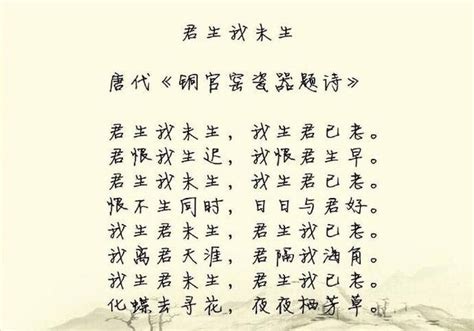 君生我未生
唐代《铜官窑瓷器题诗》
君生我未生，我生君已老。
君恨我生迟，我恨君生早。
君生我未生，我生君已老。
恨不生同时，日日与君好。
我生君未生，君生我已老。
我离君天涯，君隔我海角。
我生君未生，君生我已老。
化蝶去寻花，夜夜栖芳草。